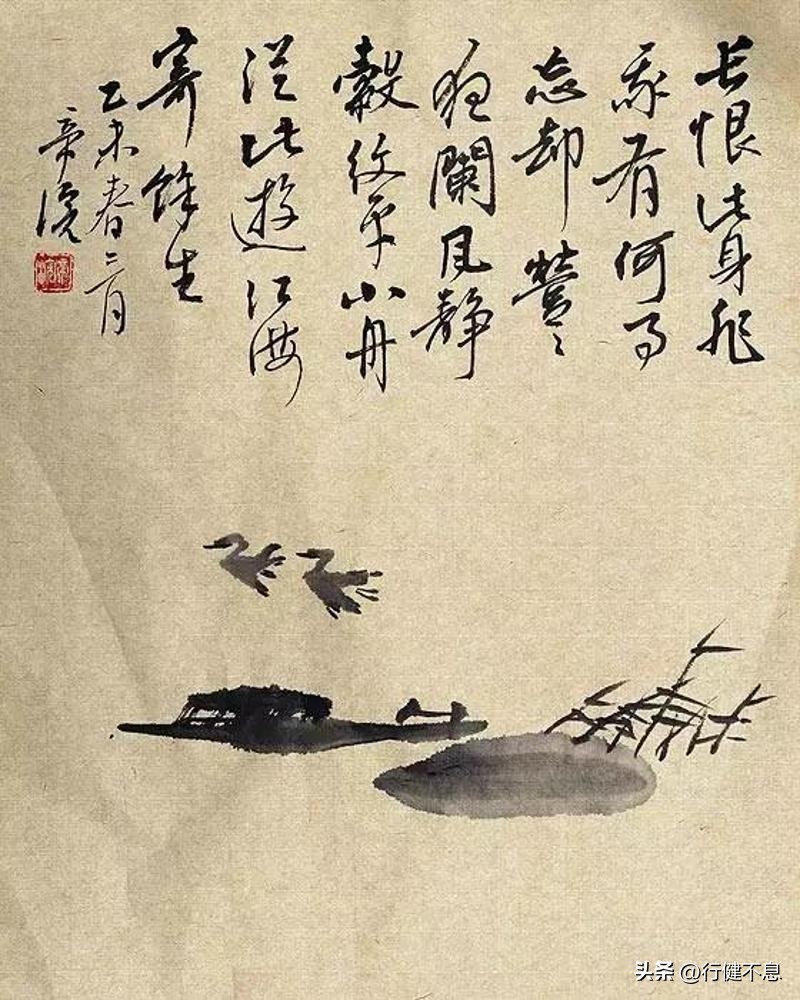 长恨此身非
我有何时
忘却营々
夜闌风静
縠纹平小舟
從此遊江海
寄餘生
乙未春三月
帝浣
头条 @行健不息